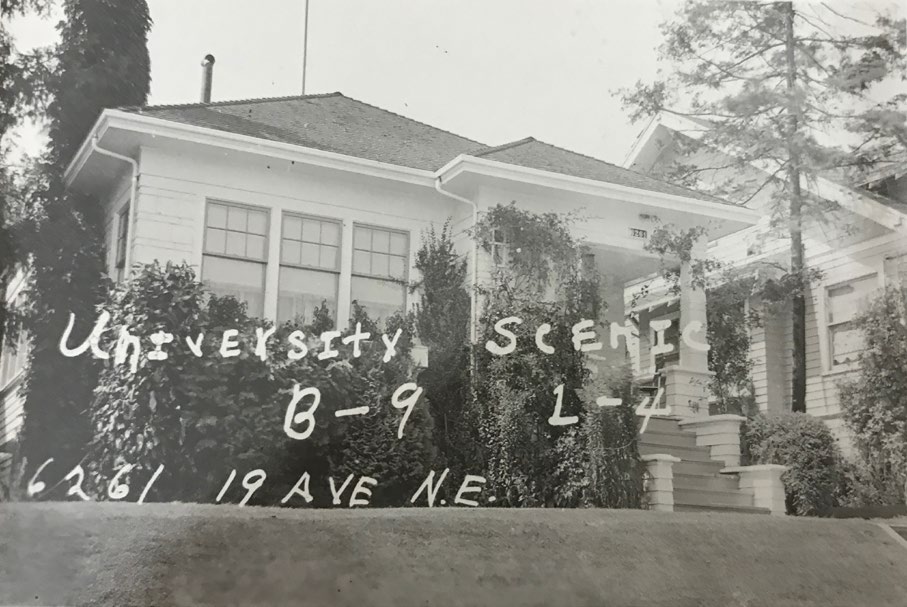 University Scenic
B-9 L-4
6261 19 AVE N.E.